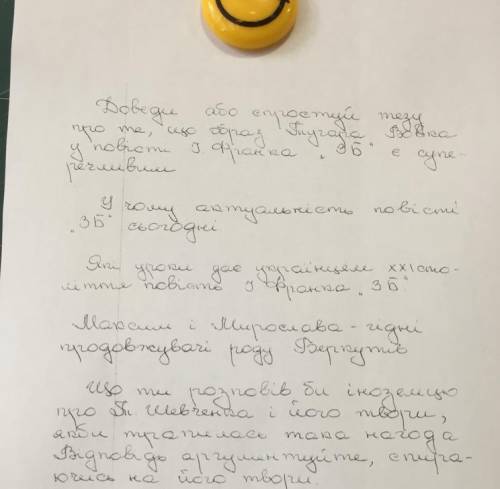 Доведи або спростуй тезу
про те, що образ Тугара Вовка
у повісті І Франка „ЗБ" є супе-
речливим
У чому актуальність повісті
„ЗБ" сьогодні
Які уроки дає українцям ХХІ сто-
ліття повість І Франка „ЗБ"
Максим і Мирослава - гідні
продовжувачі роду Беркутів
Що ти розповів би іноземцю
про Т. Шевченка і його твори,
якби трапилась така нагода
Відповідь аргументуйте, спира-
ючись на його твори.